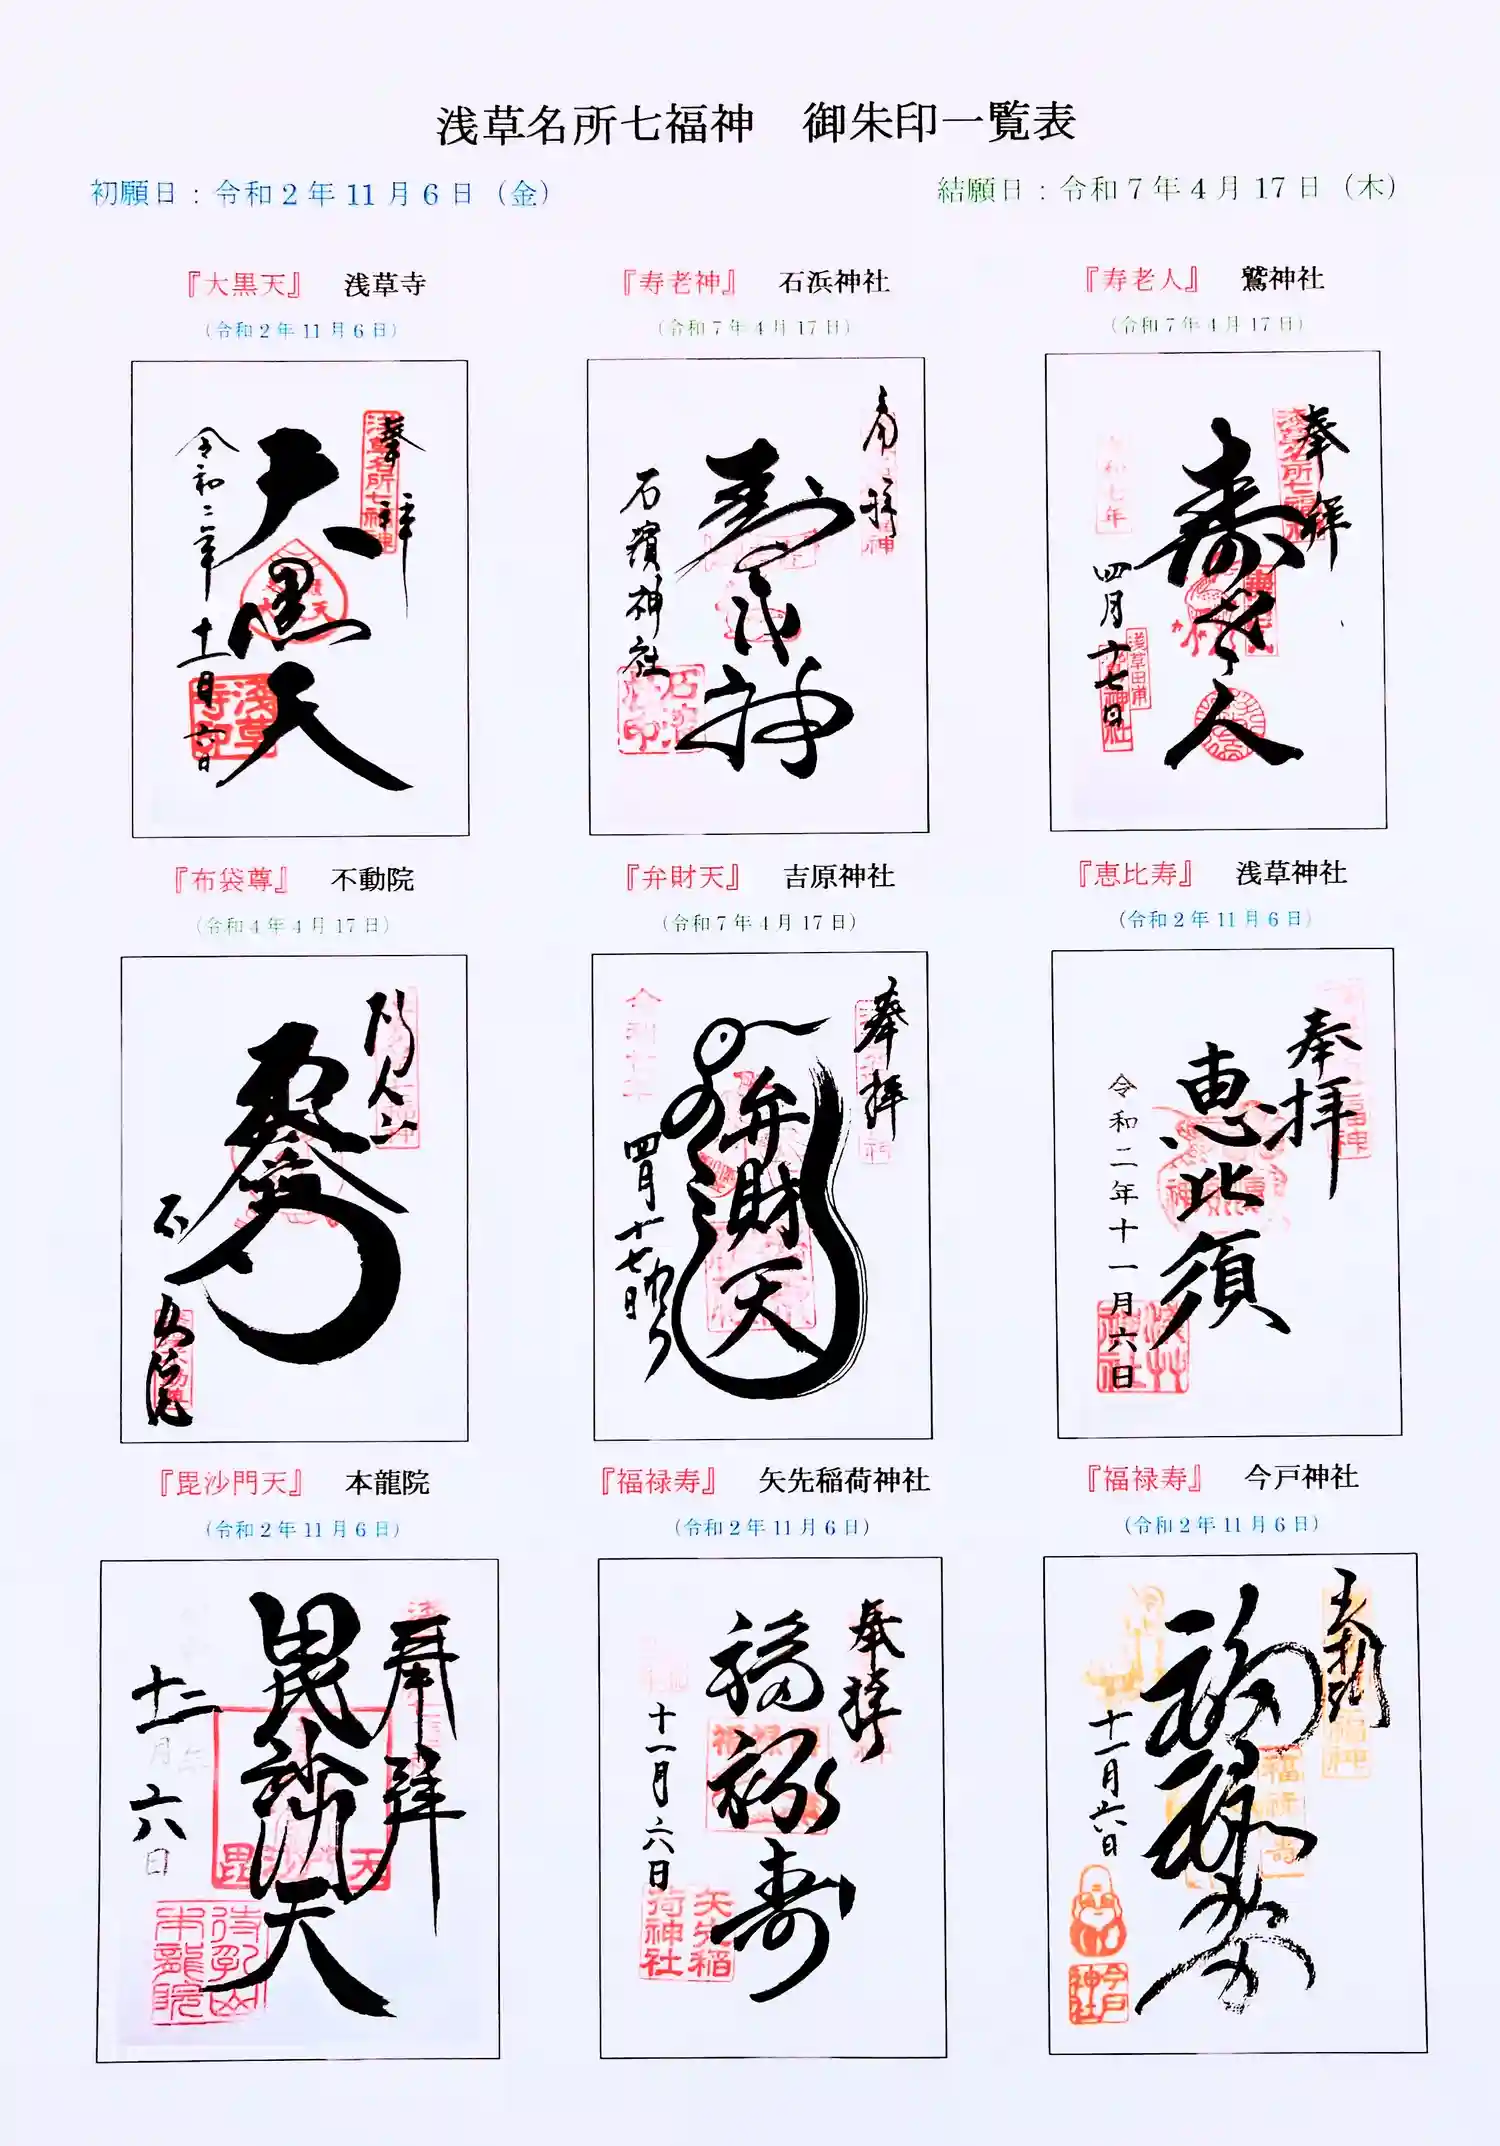 浅草名所七福神　御朱印一覧表
初願日：令和2年11月6日（金）
結願日：令和7年4月17日（木）
『大黒天』　浅草寺
（令和2年11月6日）
奉拝
浅草名所七福神
大黒天
令和二年十一月六日
浅草寺印
『寿老神』　石浜神社
（令和7年4月17日）
寿老神
石濱神社
『寿老人』　鷲神社
（令和7年4月17日）
奉拝
浅草名所七福神
寿老人
令和七年
四月十七日
『布袋尊』　不動院
（令和4年4月17日）
不動院
『弁財天』　吉原神社
（令和7年4月17日）
奉拝
弁財天
令和七年
四月十七日
『恵比寿』　浅草神社
（令和2年11月6日）
奉拝
恵比須
令和二年十一月六日
浅草神社
『毘沙門天』　本龍院
（令和2年11月6日）
奉拝
毘沙門天
毘沙門天
十一月六日
待乳山本龍院
『福禄寿』　矢先稲荷神社
（令和2年11月6日）
奉拝
福禄寿
十一月六日
矢先稲荷神社
『福禄寿』　今戸神社
（令和2年11月6日）
奉拝
福禄寿
福禄寿
十一月六日
今戸神社